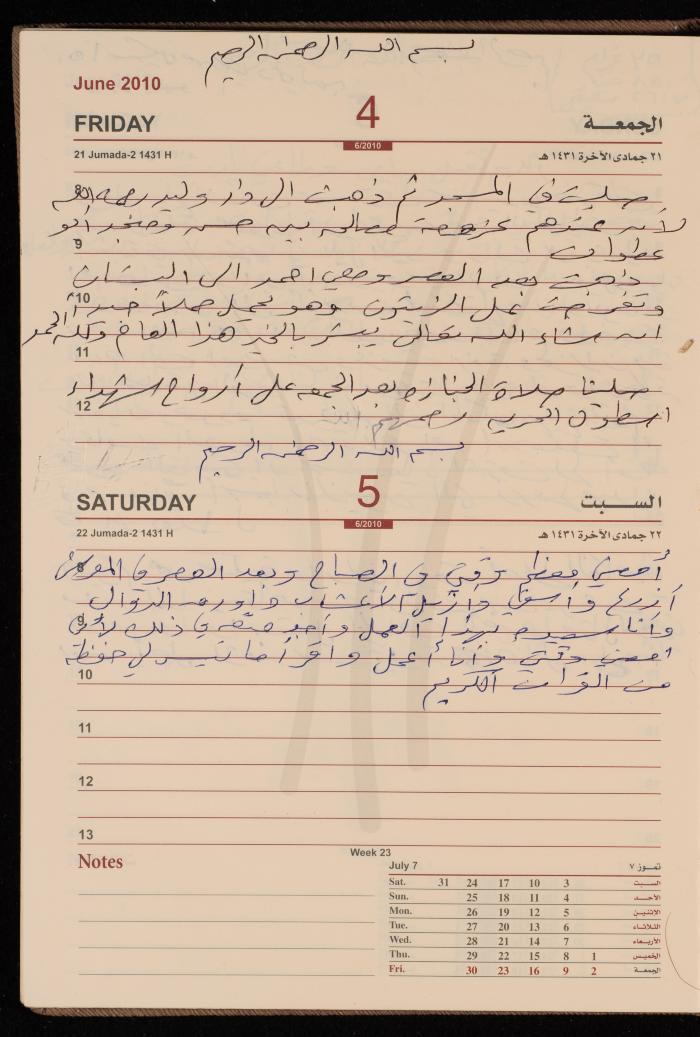 بسم الله الرحمن الرحيم
June 2010
FRIDAY 4 الجمعـــة
6/2010
21 Jumada-2 1431 H ٢١ جمادى الآخرة ١٤٣١ هـ
8
صليت في المسجد ثم ذهبت الى دار وليد رحمه الله
لأنه عندهم عزومة لمصالحه بين حسن ومحمد أبو
9
عطوان
ذهبت بعد العصر ومعي احمد الى البستان
10
وتفرجت على الزيتون وهو يحمل حملاً جيداً
ان شاء الله تعالى يبشر بالخير هذا العام ولله الحمد
11
صلينا صلاة الجنازه بعد الجمعه على أرواح شهداء
12
اسطول الحريه رحمهم الله
بسم الله الرحمن الرحيم
SATURDAY 5 الســـبت
6/2010
22 Jumada-2 1431 H ٢٢ جمادى الآخرة ١٤٣١ هـ
8
أمضي معظم وقتي في الصباح وبعد العصر في
أزرع وأسقي وأزيل الأعشاب
9
وأنا سعيد بهذا العمل وأجد متعه في ذلك لأني
امضي وقتي وأنا أعمل واقرأ ما تيسر لي حفظه
10
من القرآن الكريم
11
12
13
Notes
Week 23
July 7 تمـــوز ٧
Sat. 31 24 17 10 3 الســـبت
Sun. 25 18 11 4 الأحـــد
Mon. 26 19 12 5 الإثنيـن
Tue. 27 20 13 6 الثـلاثـاء
Wed. 28 21 14 7 الأربعـاء
Thu. 29 22 15 8 1 الخميس
Fri. 30 23 16 9 2 الجمعـة